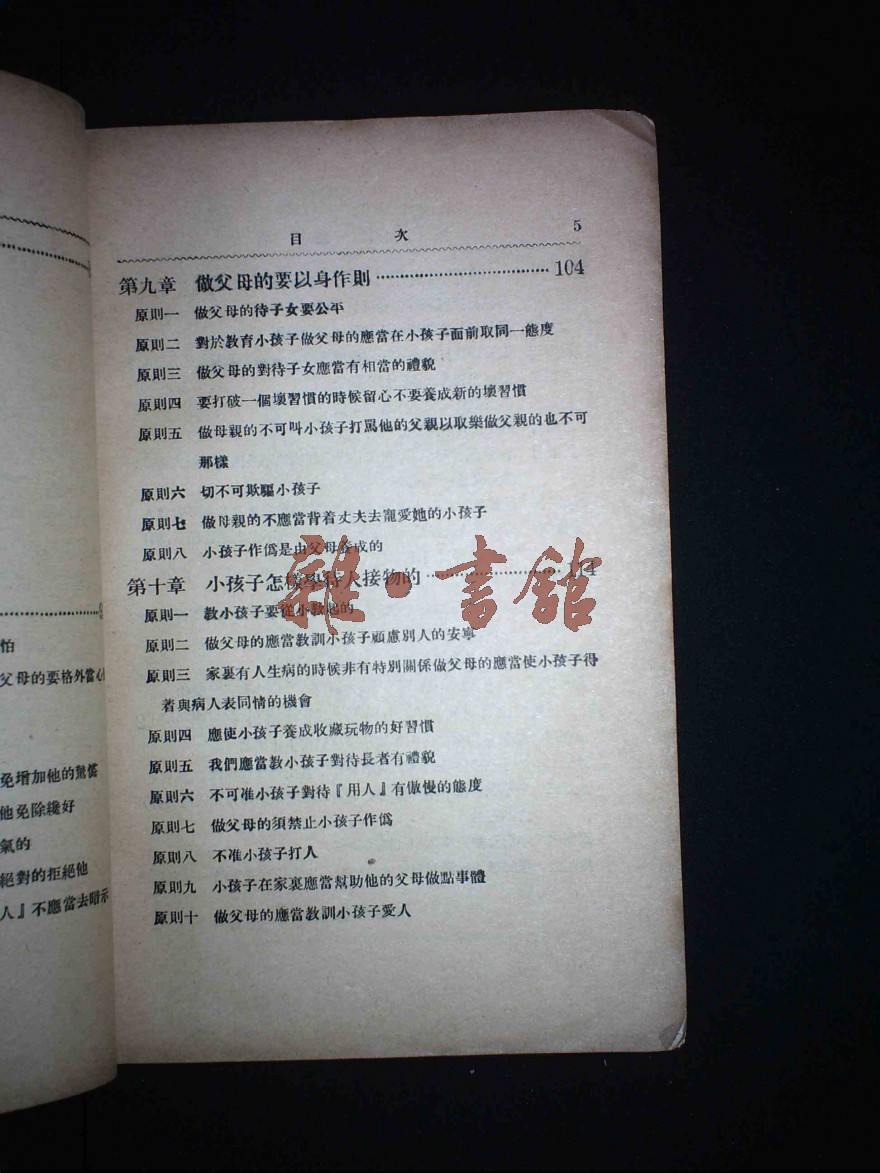 目次 5
第九章 做父母的要以身作則 104
原則一 做父母的待子女要公平
原則二 對於教育小孩子做父母的應當在小孩子面前取同一態度
原則三 做父母的對待子女應當有相當的禮貌
原則四 要打破一個壞習慣的時候留心不要養成新的壞習慣
原則五 做母親的不可叫小孩子打罵他的父親以取樂做父親的也不可
那樣
原則六 切不可欺騙小孩子
原則七 做母親的不應當背着丈夫去寵愛她的小孩子
原則八 小孩子作僞是由父母養成的
第十章 小孩子怎樣學待人接物的 114
原則一 教小孩子要從小教起的
原則二 做父母的應當教訓小孩子顧慮別人的安寧
原則三 家裏有人生病的時候非有特別關係做父母的應當使小孩子得
着與病人表同情的機會
原則四 應使小孩子養成收藏玩物的好習慣
原則五 我們應當教小孩子對待長者有禮貌
原則六 不可准小孩子對待『用人』有傲慢的態度
原則七 做父母的須禁止小孩子作僞
原則八 不准小孩子打人
原則九 小孩子在家裏應當幫助他的父母做點事體
原則十 做父母的應當教訓小孩子愛人
雜·書館
怕
父母的要格外當心
免增加他的驚慌
他免除纔好
氣的
絕對的拒絕他
人』不應當去暗示